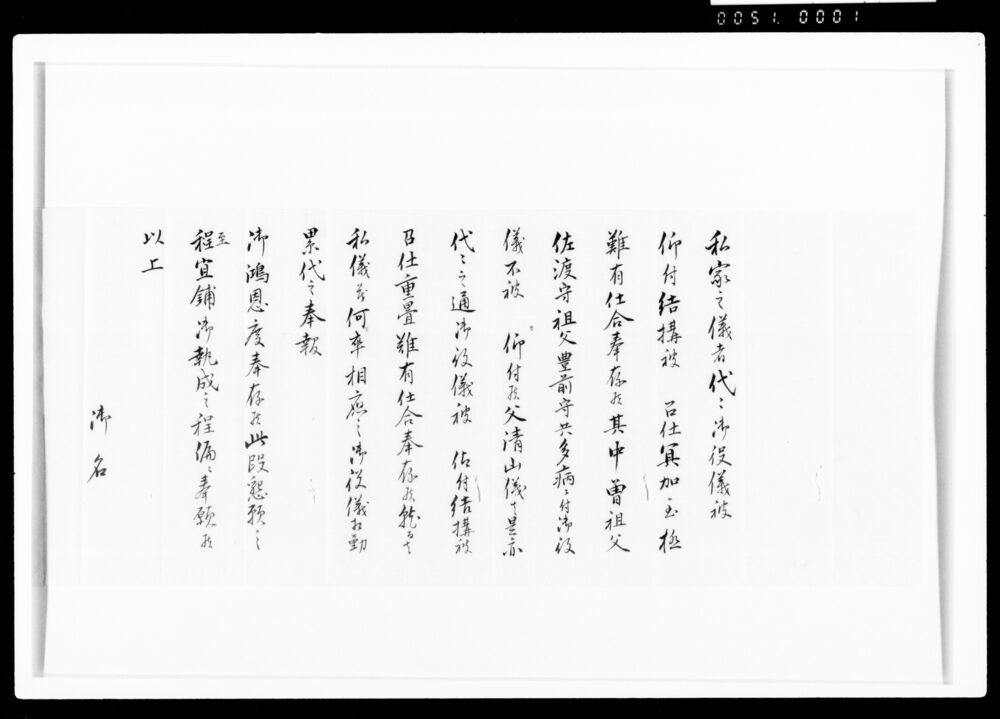 0051.0001
私家之儀者代々御役儀被
仰付結構被　召仕冥加至極
難有仕合奉存候其中曽祖父
佐渡守祖父豊前守共多病ニ付御役
儀不被　仰付候父清山儀も是亦
代々之通御役儀被　仰付結構被
召仕重畳難有仕合奉存候就夫
私儀茂何卒相応之御役儀相勤
累代之奉報
御鴻恩度奉存候此段懇願之
至程宜鋪御執成之程偏ニ奉願候
以上
御名